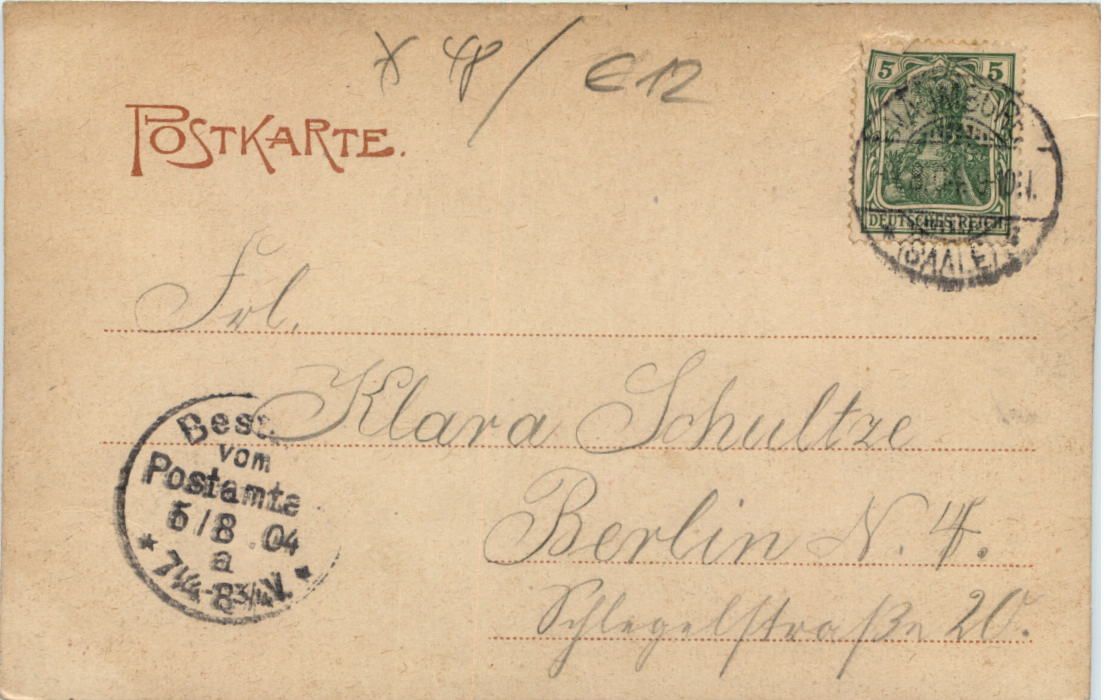 €12
POSTKARTE.
5 5
NAUMBURG
DEUTSCHES REICH
(SAALE)
Frl.
Klara Schultze
Berlin N. 4.
Schlegelstraße 20.
Best.
vom
Postamte
5/8.04
a
* 7¼-8¾V. *